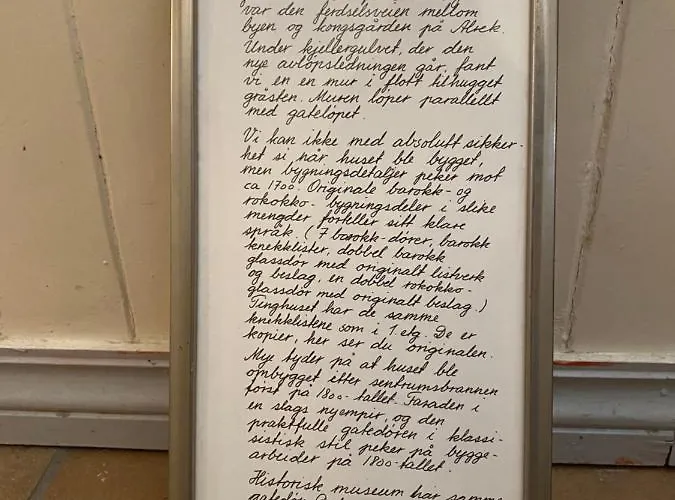 var den ferdselsveien mellom
byen og kongsgården på Alrek.
Under kjellergulvet, der den
nye avløpsledningen går, fant
vi en en mur i flott tilhugget
gråsten. Muren løper parallellt
med gateløpet.
Vi kan ikke med absolutt sikker-
het si når huset ble bygget,
men bygningsdetaljer peker mot
ca 1700. Originale barokk- og
rokokko- bygningsdeler i slike
mengder forteller sitt klare
språk. (7 barokk-dører, barokk
knekklister, dobbel barokk
glassdør med originalt listverk
og beslag, en dobbel rokokko-
glassdør med originalt beslag.)
Tinghuset har de samme
knekklistene som i 1.etg. De er
kopier, her ser du originalen.
Mye tyder på at huset ble
ombygget etter sentrumsbrannen
først på 1800-tallet. Fasaden i
en slags nyempir, og den
praktfulle gatedøren i klassi-
sistisk stil peker på bygge-
arbeider på 1800-tallet.
Historisk museum har samme